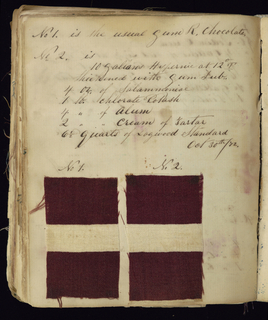 No 1. is the usual Gum R. Chocolate
No 2. is
10 Galions Hypernic at 12 °T
thickened with Gum Sub.
4 oz. of Salammoniac
1 lb Chlorate Potash
" " of Alum
2 " " Cream of Tartar
Quarts of Logwood Standard
Oct 30th/
No 1. No 2.